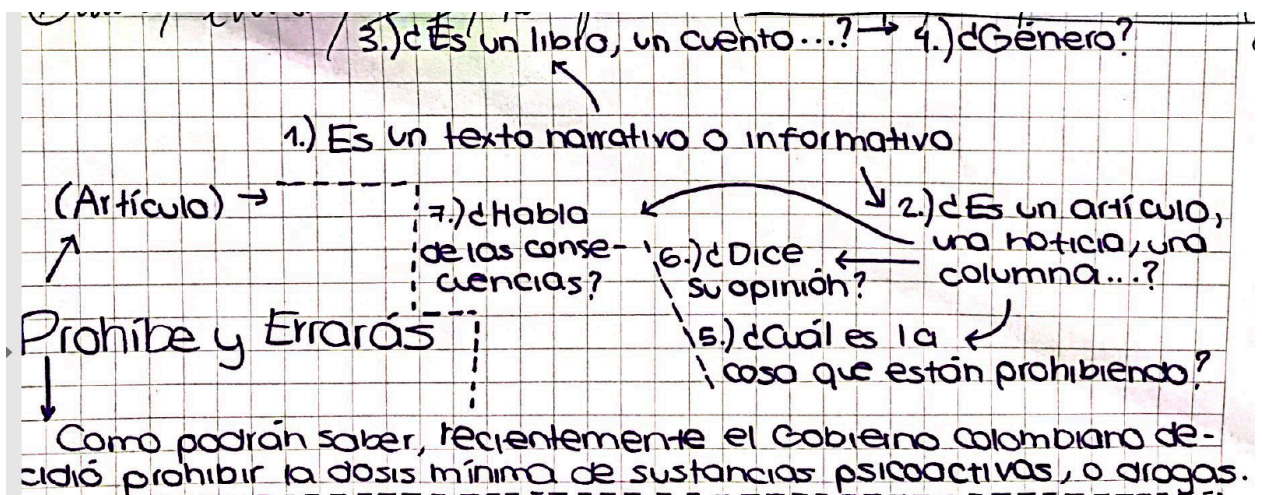 3.) ¿Es un libro, un cuento...? → 4.) ¿Género?
1.) Es un texto narrativo o informativo
(Artículo) →
7.) ¿Habla
de las conse-
cuencias?
2.) ¿Es un artículo,
una noticia, una
columna...?
6.) ¿Dice
su opinión?
5.) ¿Cuál es la
cosa que están prohibiendo?
Prohíbe y Errarás
Como podrán saber, recientemente el Gobierno colombiano de-
cidió prohibir la dosis mínima de sustancias psicoactivas, o drogas.